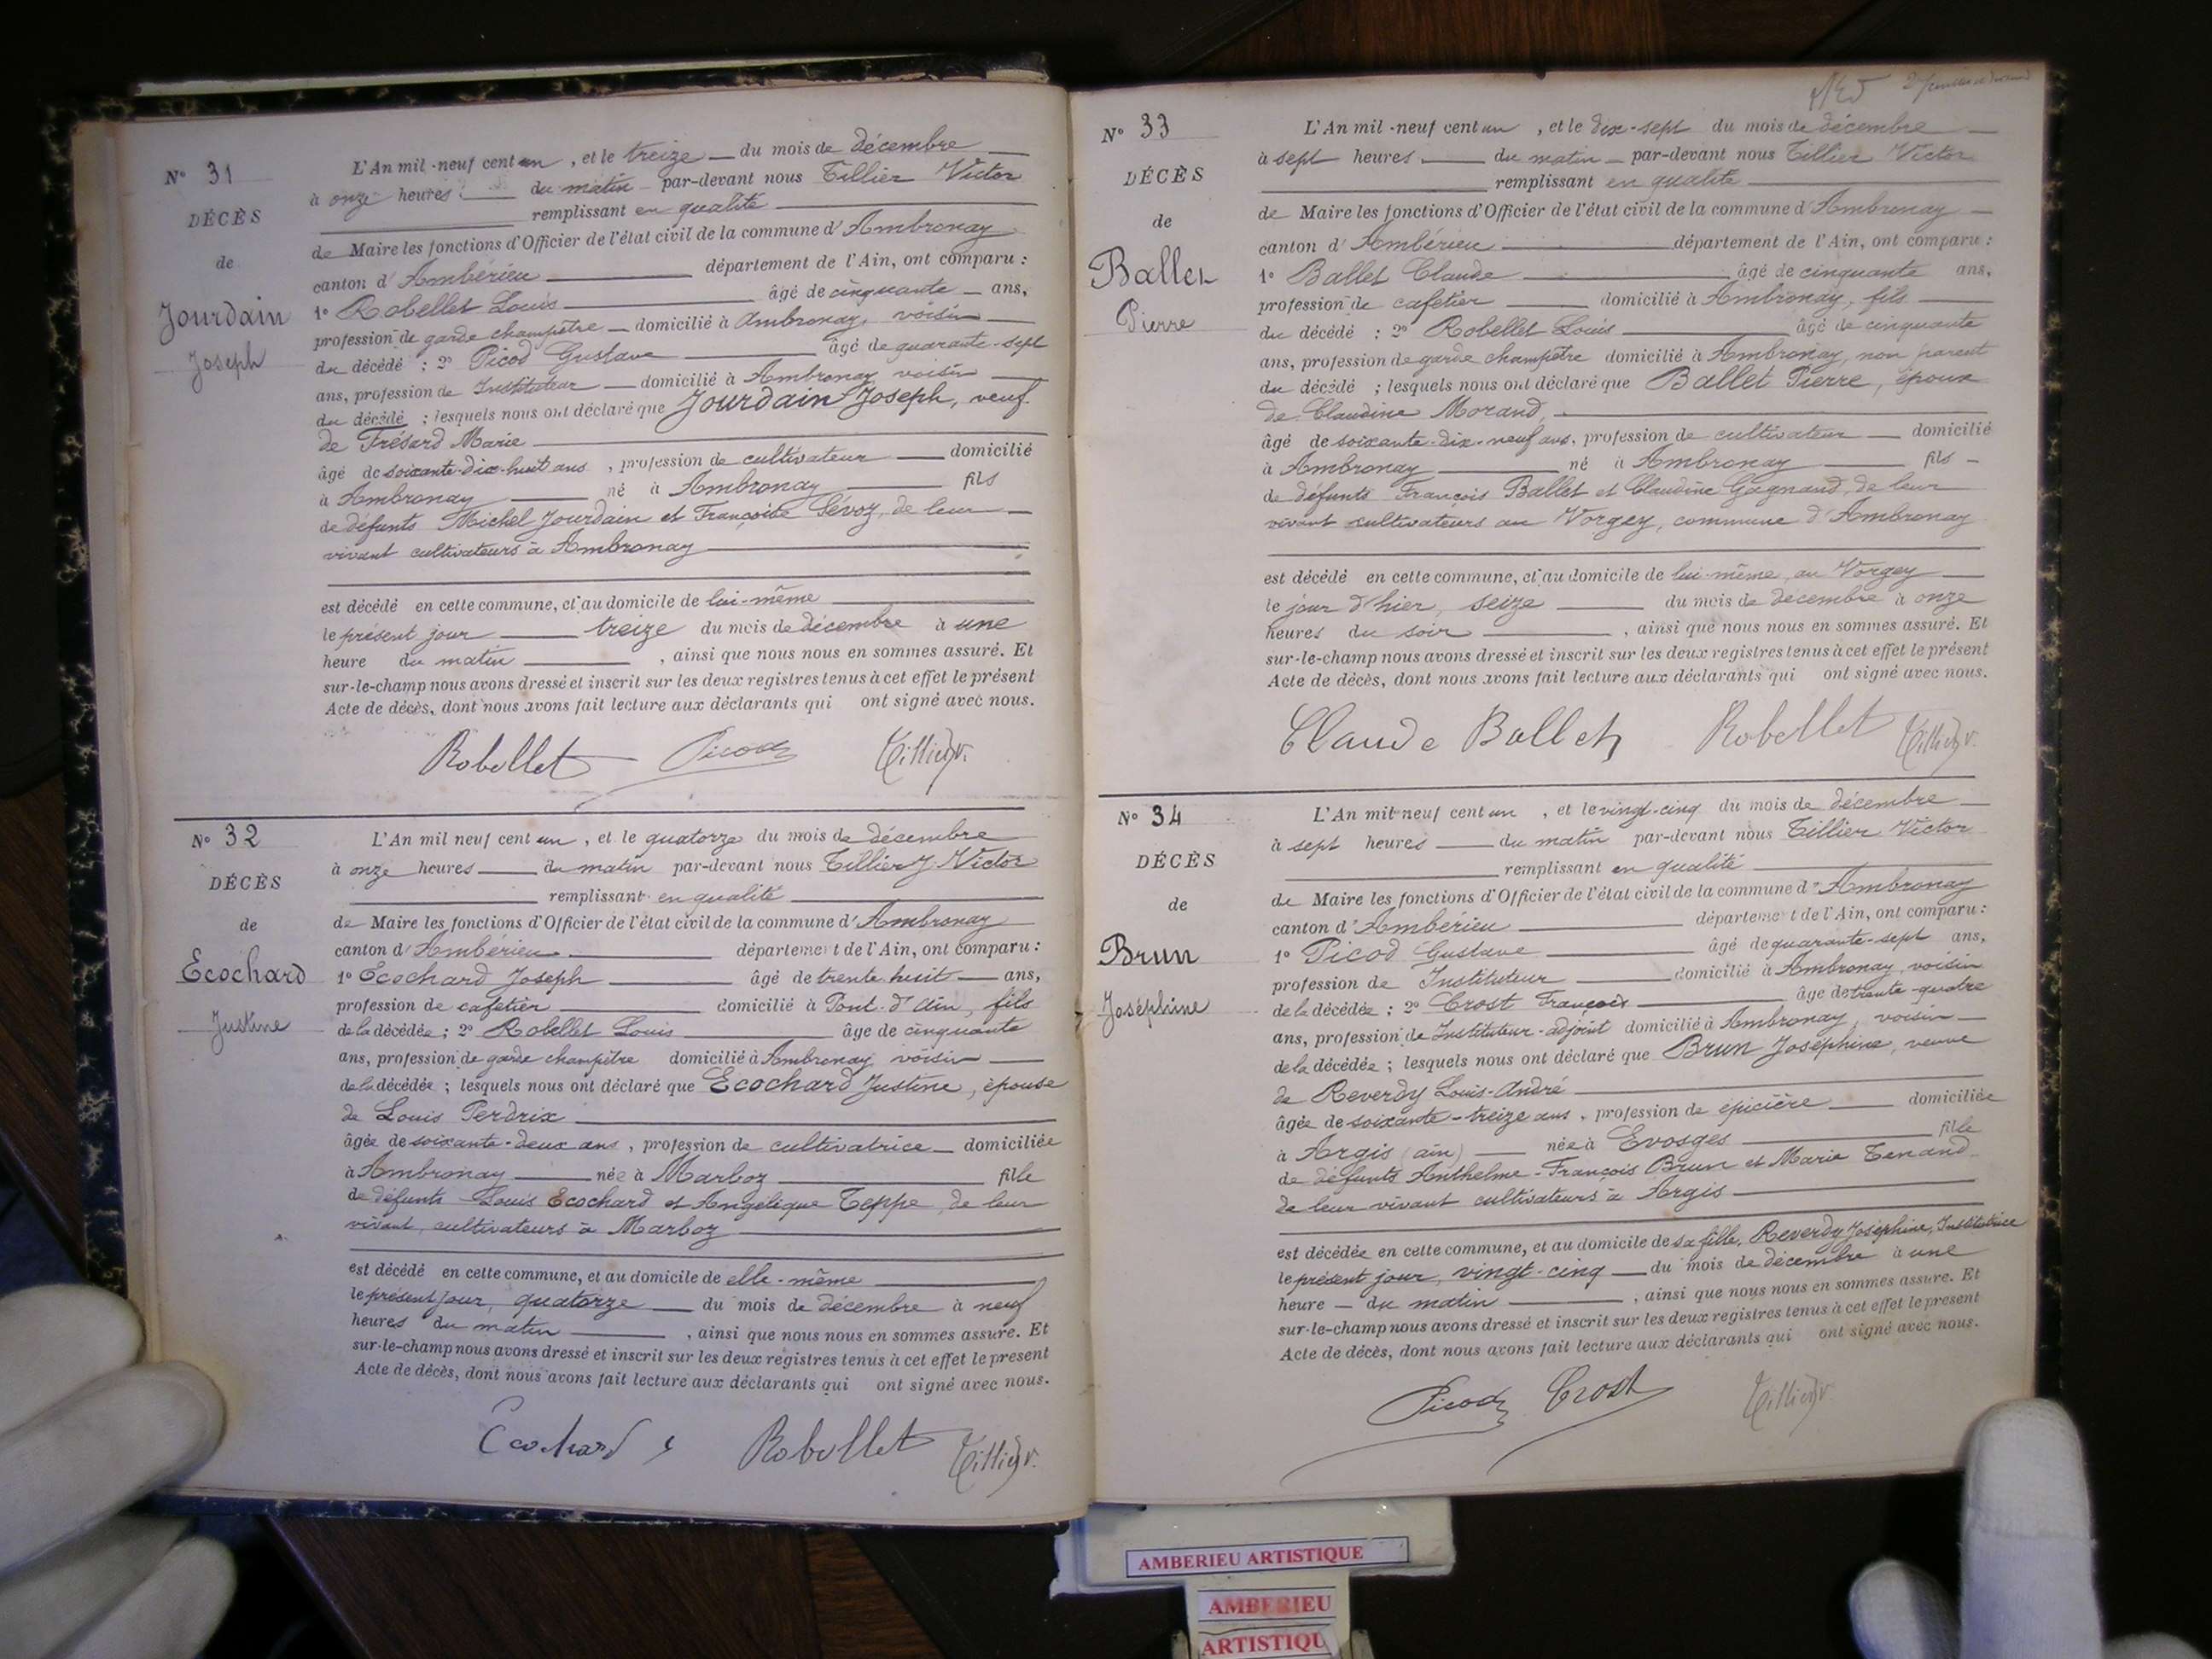 N° 31
DÉCÈS
de
Jourdain
Joseph
L'An mil-neuf cent un, et le treize du mois de décembre
à onze heures du matin par-devant nous Tillier Victor
remplissant en qualité
de Maire les fonctions d'Officier de l'état civil de la commune d'Ambronay
canton d'Ambérieu département de l'Ain, ont comparu :
1° Robellet Louis âgé de cinquante ans,
profession de garde champêtre domicilié à Ambronay, voisin
du décédé ; 2° Picod Gustave âgé de quarante-sept
ans, profession de Instituteur domicilié à Ambronay voisin
du décédé ; lesquels nous ont déclaré que Jourdain Joseph, veuf
de Frésard Marie
âgé de soixante-dix-huit ans, profession de cultivateur domicilié
à Ambronay né à Ambronay fils
de défunts Michel Jourdain et Françoise Sévoz, de leur
vivant cultivateurs à Ambronay
est décédé en cette commune, et au domicile de lui-même
le présent jour treize du mois de décembre à une
heure du matin, ainsi que nous nous en sommes assuré. Et
sur-le-champ nous avons dressé et inscrit sur les deux registres tenus à cet effet le présent
Acte de décès, dont nous avons fait lecture aux déclarants qui ont signé avec nous.
Robellet Picod Tillier V.
N° 32
DÉCÈS
de
Ecochard
Justine
L'An mil neuf cent un, et le quatorze du mois de décembre
à onze heures du matin par-devant nous Tillier Victor
remplissant en qualité
de Maire les fonctions d'Officier de l'état civil de la commune d'Ambronay
canton d'Ambérieu département de l'Ain, ont comparu :
1° Ecochard Joseph âgé de trente huit ans,
profession de cafetier domicilié à Pont-d'Ain, fils
de la décédée ; 2° Robellet Louis âge de cinquante
ans, profession de garde champêtre domicilié à Ambronay voisin
de la décédée ; lesquels nous ont déclaré que Ecochard Justine, épouse
de Louis Perdrix
âgée de soixante-deux ans, profession de cultivatrice domiciliée
à Ambronay née à Marboz fille
de défunts Louis Ecochard et Angélique Teppe, de leur
vivant, cultivateurs à Marboz
est décédé en cette commune, et au domicile de elle-même
le présent jour, quatorze du mois de décembre à neuf
heures du matin, ainsi que nous nous en sommes assuré. Et
sur-le-champ nous avons dressé et inscrit sur les deux registres tenus à cet effet le présent
Acte de décès, dont nous avons fait lecture aux déclarants qui ont signé avec nous.
Ecochard J Robellet Tillier V.
N° 33
DÉCÈS
de
Ballet
Pierre
L'An mil-neuf cent un, et le dix-sept du mois de décembre
à sept heures du matin par-devant nous Tillier Victor
remplissant en qualité
de Maire les fonctions d'Officier de l'état civil de la commune d'Ambronay
canton d'Ambérieu département de l'Ain, ont comparu :
1° Ballet Claude âgé de cinquante ans,
profession de cafetier domicilié à Ambronay, fils
du décédé : 2° Robellet Louis âgé de cinquante
ans, profession de garde champêtre domicilié à Ambronay, non parent
du décédé ; lesquels nous ont déclaré que Ballet Pierre, époux
de Claudine Morand,
âgé de soixante-dix-neuf ans, profession de cultivateur domicilié
à Ambronay né à Ambronay fils
de défunts François Ballet et Claudine Gagnaud, de leur
vivant cultivateurs au Vorgey, commune d'Ambronay
est décédé en cette commune, et au domicile de lui-même, au Vorgey
le jour d'hier, seize du mois de décembre à onze
heures du soir, ainsi que nous nous en sommes assuré. Et
sur-le-champ nous avons dressé et inscrit sur les deux registres tenus à cet effet le présent
Acte de décès, dont nous avons fait lecture aux déclarants qui ont signé avec nous.
Claude Ballet Robellet Tillier V.
N° 34
DÉCÈS
de
Brun
Joséphine
L'An mil neuf cent un, et le vingt-cinq du mois de décembre
à sept heures du matin par-devant nous Tillier Victor
remplissant en qualité
de Maire les fonctions d'Officier de l'état civil de la commune d'Ambronay
canton d'Ambérieu département de l'Ain, ont comparu :
1° Picod Gustave âgé de quarante-sept ans,
profession de Instituteur domicilié à Ambronay, voisin
de la décédée ; 2° Crost François âge de trente-quatre
ans, profession de Instituteur-adjoint domicilié à Ambronay, voisin
de la décédée ; lesquels nous ont déclaré que Brun Joséphine, veuve
de Reverdy Louis-André
âgée de soixante-treize ans, profession de épicière domiciliée
à Argis (ain) née à Evosges fille
de défunts Anthelme-François Brun et Marie Tenand
de leur vivant cultivateurs à Argis
est décédée en cette commune, et au domicile de sa fille, Reverdy Joséphine, Institutrice
le présent jour, vingt-cinq du mois de décembre à une
heure du matin, ainsi que nous nous en sommes assuré. Et
sur-le-champ nous avons dressé et inscrit sur les deux registres tenus à cet effet le présent
Acte de décès, dont nous avons fait lecture aux déclarants qui ont signé avec nous.
Picod Crost Tillier V.
AMBERIEU ARTISTIQUE
AMBERIEU
ARTISTIQU